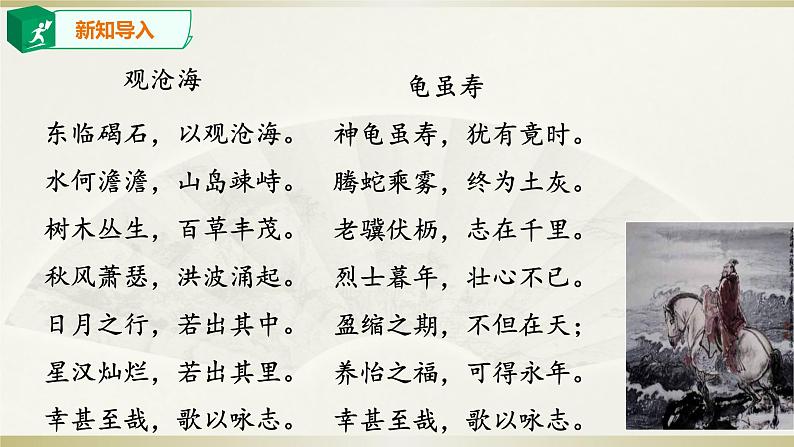 新知导入
观沧海
东临碣石，以观沧海。
水何澹澹，山岛竦峙。
树木丛生，百草丰茂。
秋风萧瑟，洪波涌起。
日月之行，若出其中。
星汉灿烂，若出其里。
幸甚至哉，歌以咏志。
龟虽寿
神龟虽寿，犹有竟时。
腾蛇乘雾，终为土灰。
老骥伏枥，志在千里。
烈士暮年，壮心不已。
盈缩之期，不但在天；
养怡之福，可得永年。
幸甚至哉，歌以咏志。